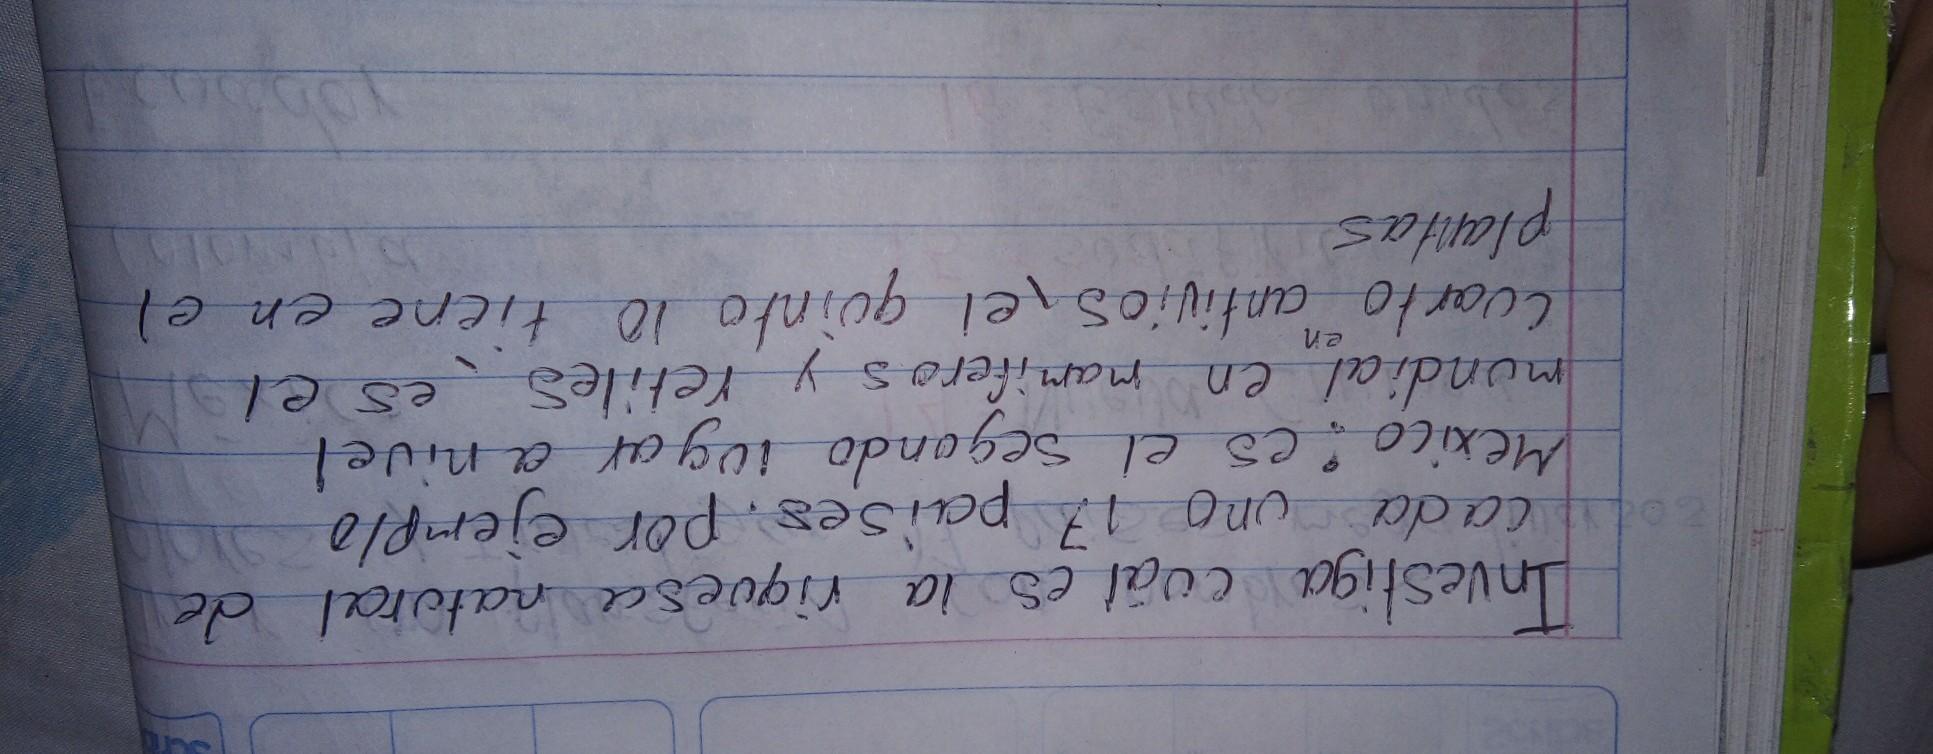 Investiga cual es la riquesa natural de
cada uno 17 paises. por ejemplo
Mexico: es el segundo lugar a nivel
mundial en mamiferos y retiles, es el
cuarto en antivios, el quinto lo tiene en el
plantas